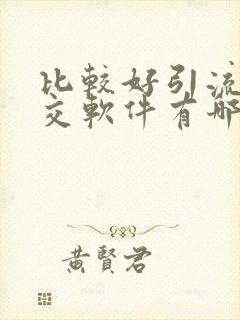 比較好引流
交軟件有哪
黃賢君